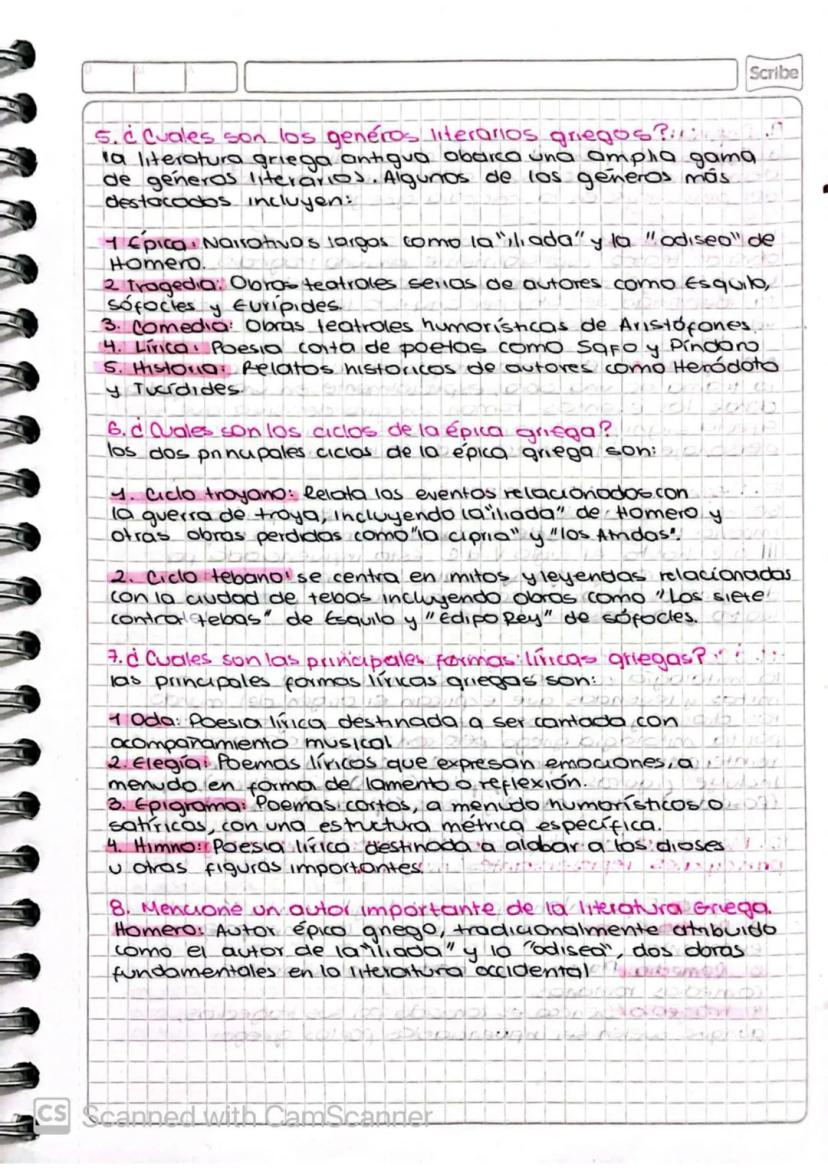 Scribe
5. ¿Cuales son los genéros literarios griegos?
la literatura griega antigua abarca una amplia gama
de géneros literarios. Algunos de los géneros más
destacados incluyen:
1 Épica: Narrativas largas como la "iliada" y la "odisea" de
Homero.
2 Tragedia: Obras teatrales serias de autores como Esquilo,
Sófocles y Eurípides.
3. Comedia: Obras teatrales humorísticas de Aristófanes
4. Lírica: Poesía corta de poetas como Safo y Píndaro
5. Historia: Relatos historicos de autores como Heródoto
y Tucídides.
6. ¿Cuales son los ciclos de la épica griega?
los dos principales ciclos de la épica griega son:
1. Ciclo troyano: Relata los eventos relacionados con
la guerra de troya, incluyendo la "iliada" de Homero y
otras obras perdidas como "la cipria" y "los Atridas".
2. Ciclo tebano: se centra en mitos y leyendas relacionadas
con la ciudad de tebas incluyendo obras como "Los siete
contra tebas" de Esquilo y "Edipo Rey" de sófocles.
7. ¿Cuales son las principales formas líricas griegas?
las principales formas líricas griegas son:
1 Oda: Poesia lírica destinada a ser cantada con
acompañamiento musical
2. Elegía: Poemas líricos que expresan emociones, a
menudo en forma de lamento o reflexión.
3. Epigrama: Poemas cortos, a menudo humorísticos o
satíricos, con una estructura métrica específica.
4. Himno: Poesía lírica destinada a alabar a los dioses
u otras figuras importantes
8. Mencione un autor importante de la literatura Griega.
Homero: Autor épico griego, tradicionalmente atribuido
como el autor de la "iliada" y la "odisea", dos obras
fundamentales en la literatura occidental
CS Scanned with CamScanner